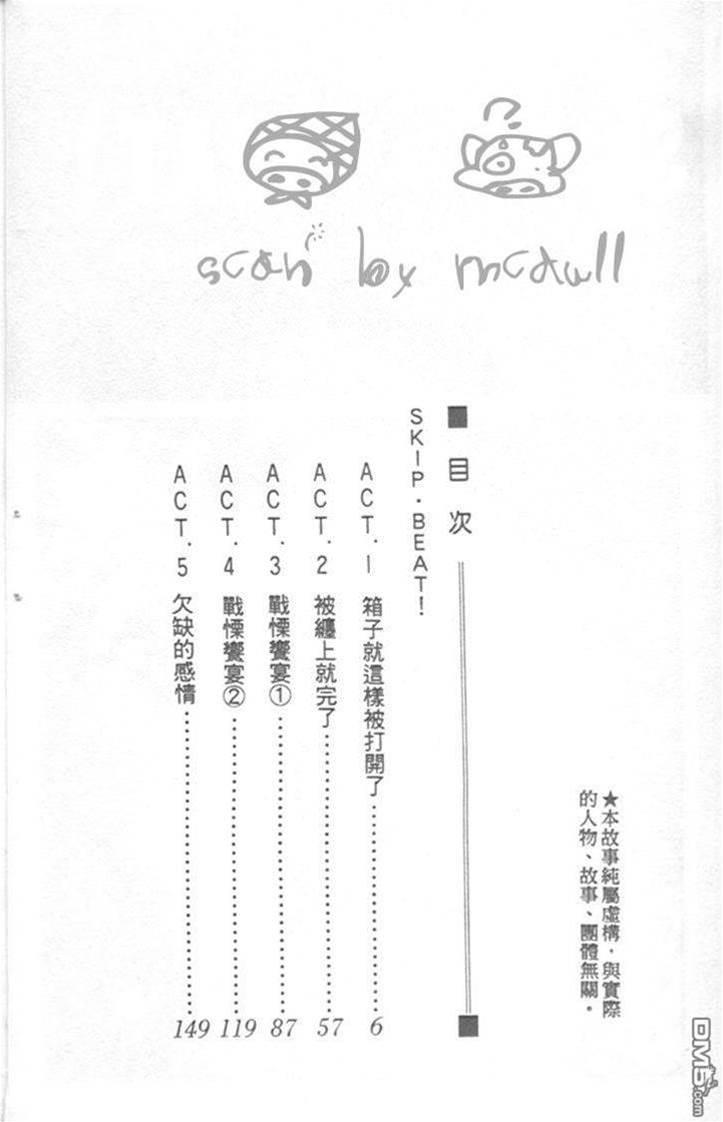 ?
scan by mcdull
■ 目次
SKIP・BEAT!
ACT.1 箱子就這樣被打開了…………………… 6
ACT.2 被纏上就完了…………………… 57
ACT.3 戰慄饗宴①…………………… 87
ACT.4 戰慄饗宴②…………………… 119
ACT.5 欠缺的感情…………………… 149
★本故事純屬虛構，與實際
的人物、故事、團體無關。
DM5.com